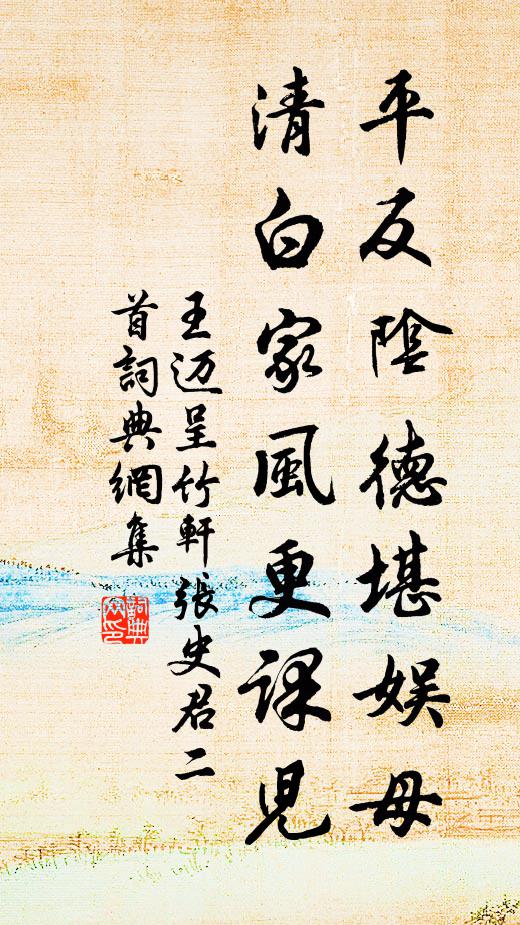 平反陰德堪娛母
清白家風更課兒
王迈呈竹軒張史君二
首詞典網集